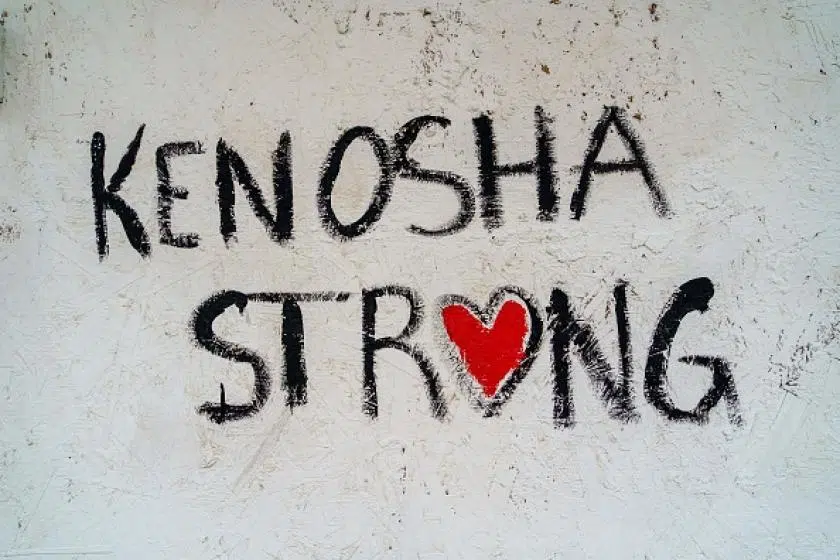 KENOSHA
STR♥NG